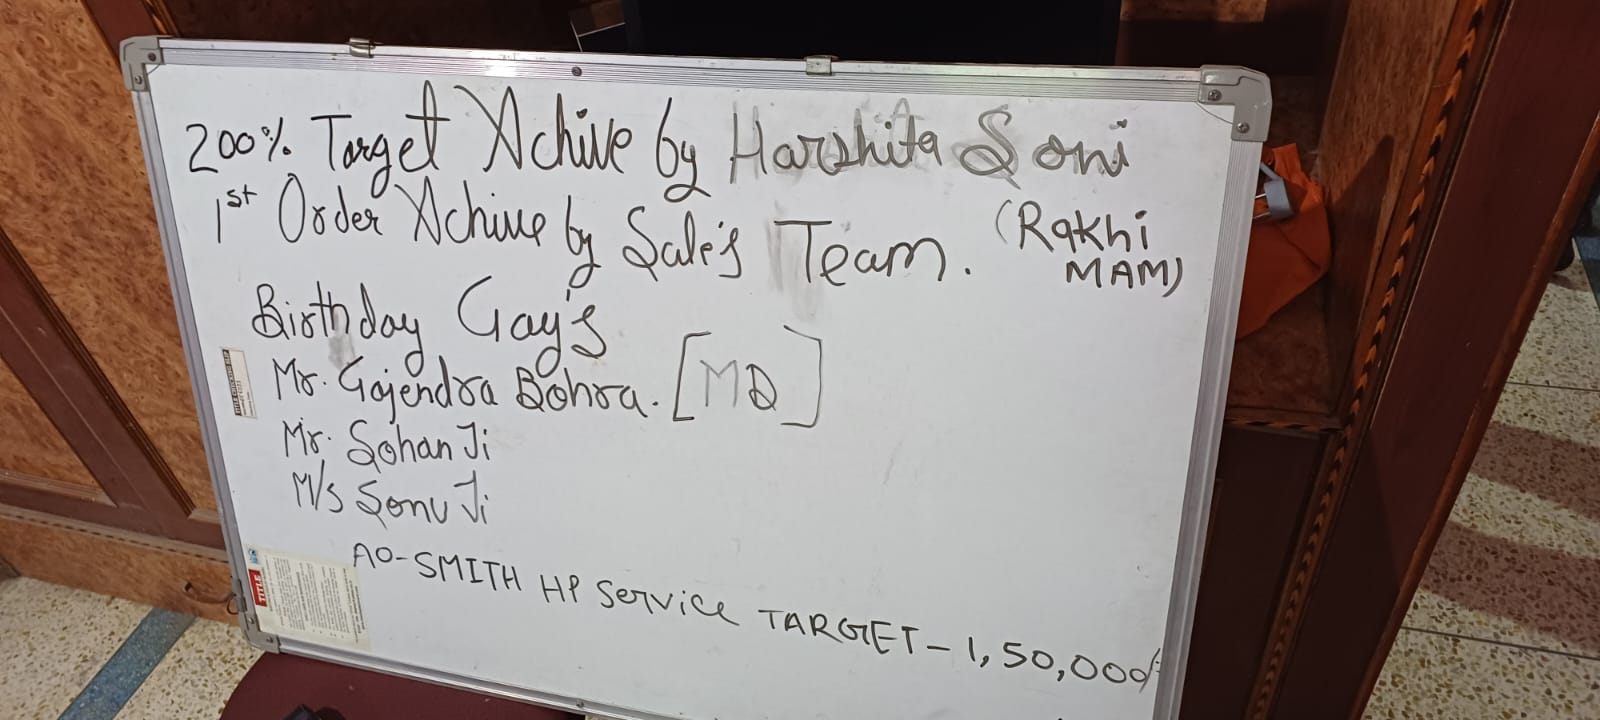 200% Target Achive by Harshita Soni
1st Order Achive by Sale's Team. (Rakhi
MAM)
Birthday Gay's
Mr. Gajendra Bohra. [MD]
Mr. Sohan Ji
M/s Sonu Ji
AO-SMITH HP Service TARGET - 1,50,000/-
TITLE